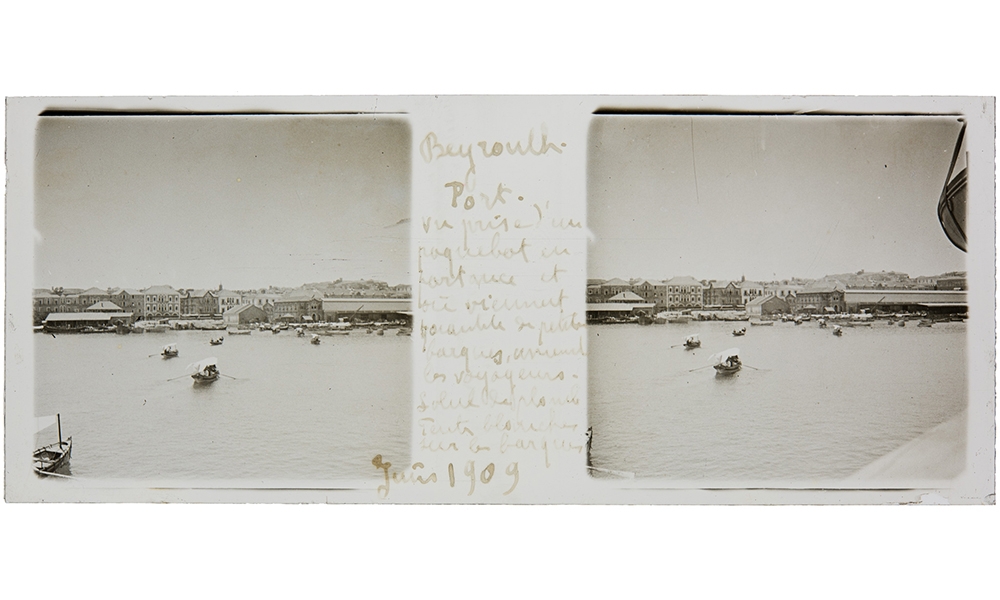 Beyrouth.
Port.
vu prise d'un
paquebot en
et
où viennent
quantité de petites
barques, amenant
les voyageurs.
Soleil de plomb
Tentes blanches
sur les barques
Juin 1909